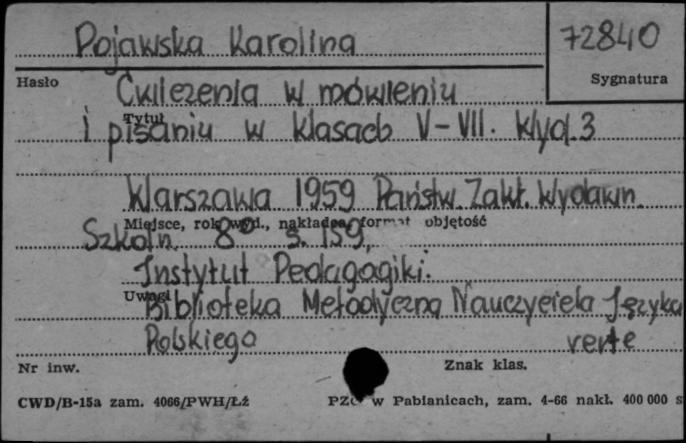 Pojawska Karolina
72840
Hasło
Sygnatura
Ćwiczenia w mówieniu
Tytuł
i pisaniu w klasach V-VII. Wyd. 3
Warszawa 1959 Państw. Zakł. Wydawn.
Miejsce, rok wyd., nakładca, format objętość
Szkoln. 8° s. 159,
Instytut Pedagogiki.
Uwagi
Biblioteka Metodyczna Nauczyciela Języka
Polskiego verte
Nr inw.
Znak klas.
CWD/B-15a zam. 4066/PWH/Łź
w Pabianicach, zam. 4-66 nakł. 400 000 s